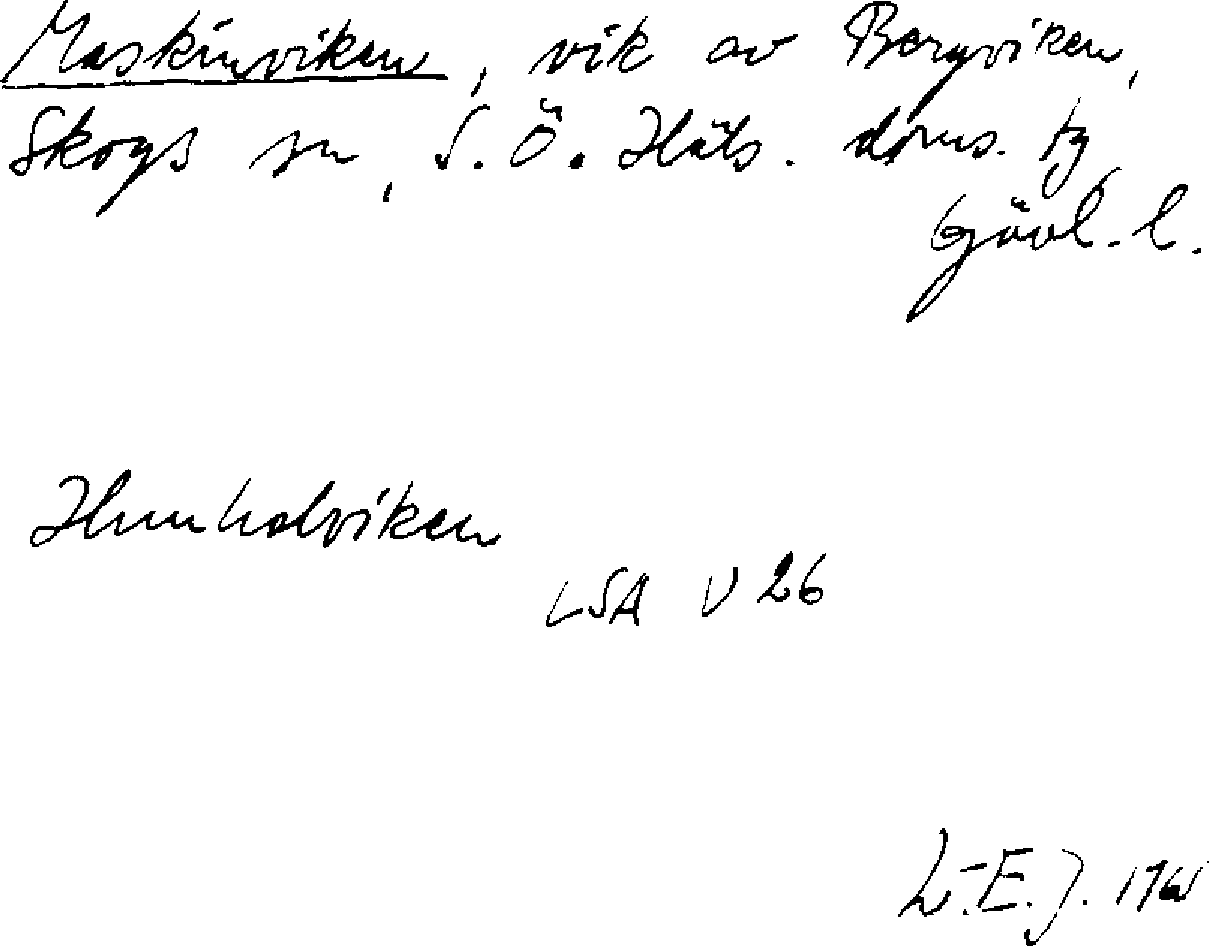 Maskinviken, vik av Bergviken,
Skogs sn, S. Ö. Häls. doms. tg
Gävl. l.
Hunholviken
LSA V 26
L.-E. J.